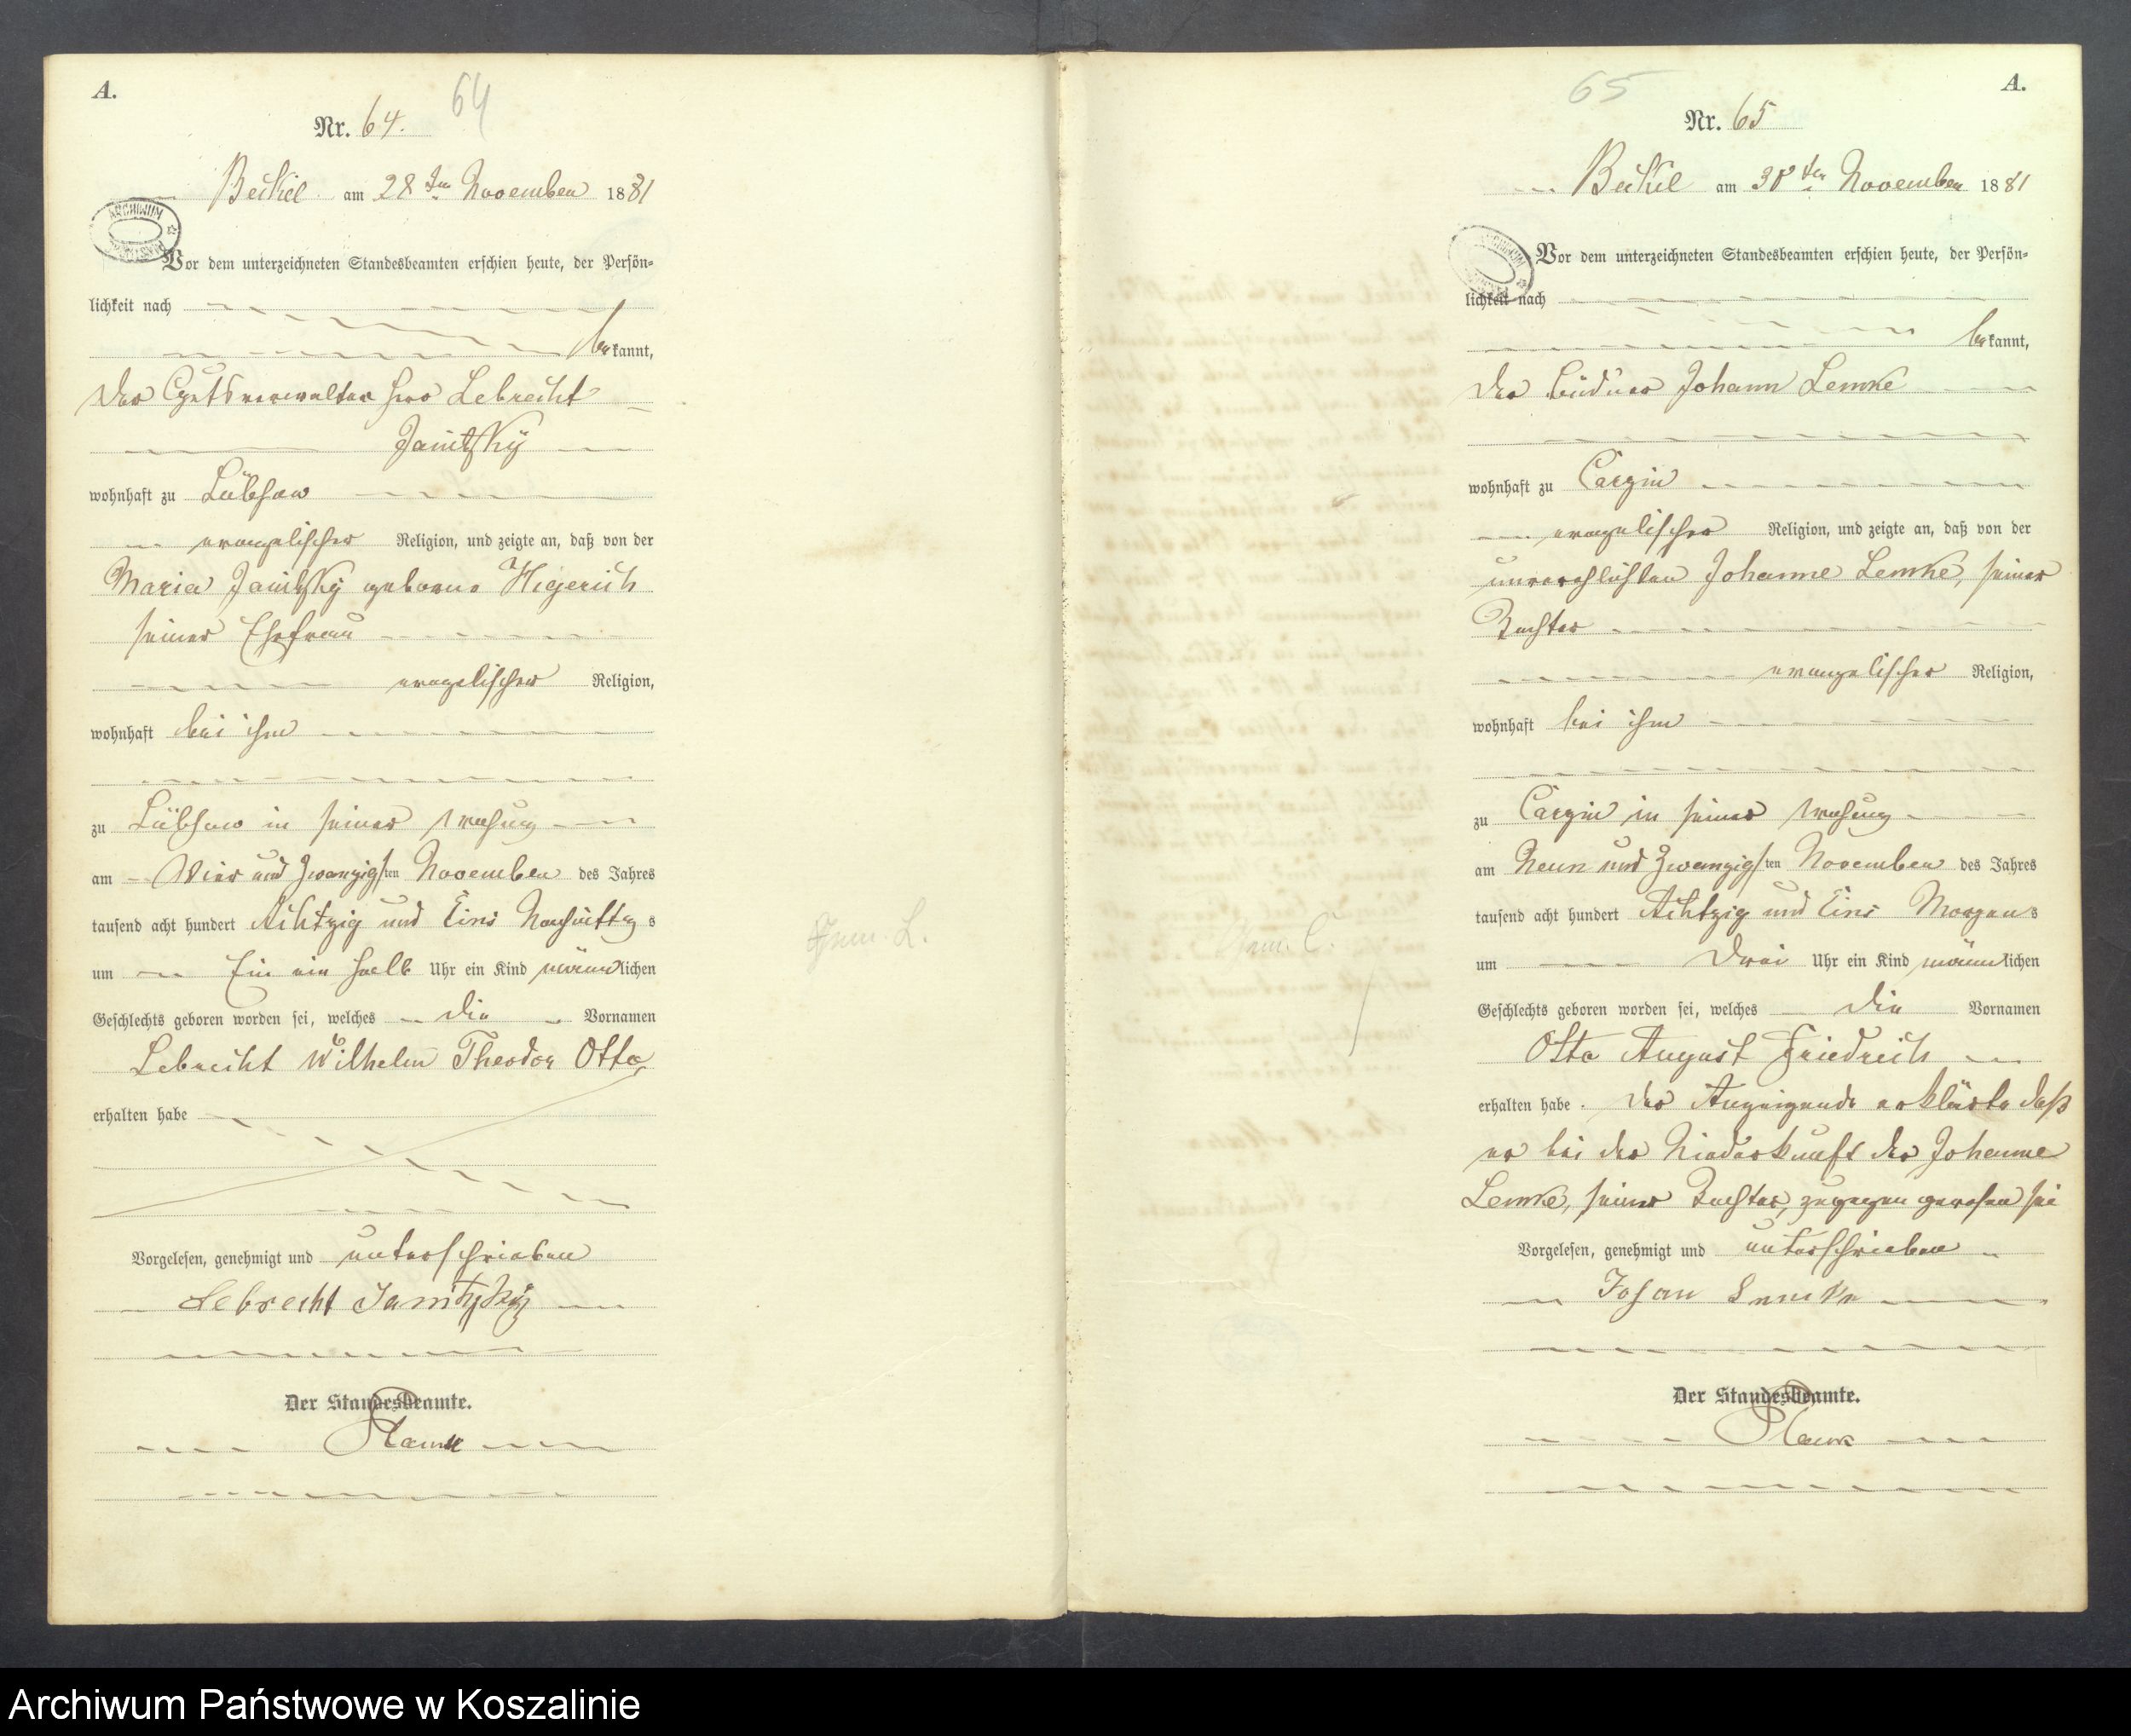 A.
Nr. 64.
64
Beckel am 28ten November 1881
ARCHIWUM
Vor dem unterzeichneten Standesbeamten erschien heute, der Persön=
lichkeit nach
bekannt,
der Gutsverwalter Herr Lebrecht
Janitzky
wohnhaft zu Lübsow
evangelischer Religion, und zeigte an, daß von der
Maria Janitzky geborne
seiner Ehefrau
evangelischer Religion,
wohnhaft bei ihm
zu Lübsow in seiner Wohnung
am Vier und Zwanzigsten November des Jahres
tausend acht hundert Achtzig und Eins Nachmittags
um Ein ein halb Uhr ein Kind männlichen
Geschlechts geboren worden sei, welches die Vornamen
Lebrecht Wilhelm Theodor Otto
erhalten habe
Vorgelesen, genehmigt und unterschrieben
Lebrecht Janitzky
Der Standesbeamte.
L.
65
A.
Nr. 65
Beckel am 30ten November 1881
ARCHIWUM
Vor dem unterzeichneten Standesbeamten erschien heute, der Persön=
lichkeit nach
bekannt,
der Büdner Johann Lemke
wohnhaft zu Cargin
evangelischer Religion, und zeigte an, daß von der
unverehlichten Johanne Lemke, seiner
Tochter
evangelischer Religion,
wohnhaft bei ihm
zu Cargin in seiner Wohnung
am Neun und Zwanzigsten November des Jahres
tausend acht hundert Achtzig und Eins Morgens
um Drei Uhr ein Kind männlichen
Geschlechts geboren worden sei, welches die Vornamen
Otto August Friedrich
erhalten habe. Der Anzeigende erklärte daß
er bei der Niederkunft der Johanne
Lemke, seiner Tochter, zugegen gewesen sei
Vorgelesen, genehmigt und unterschrieben
Johan Lemke
Der Standesbeamte.
C.
Archiwum Państwowe w Koszalinie